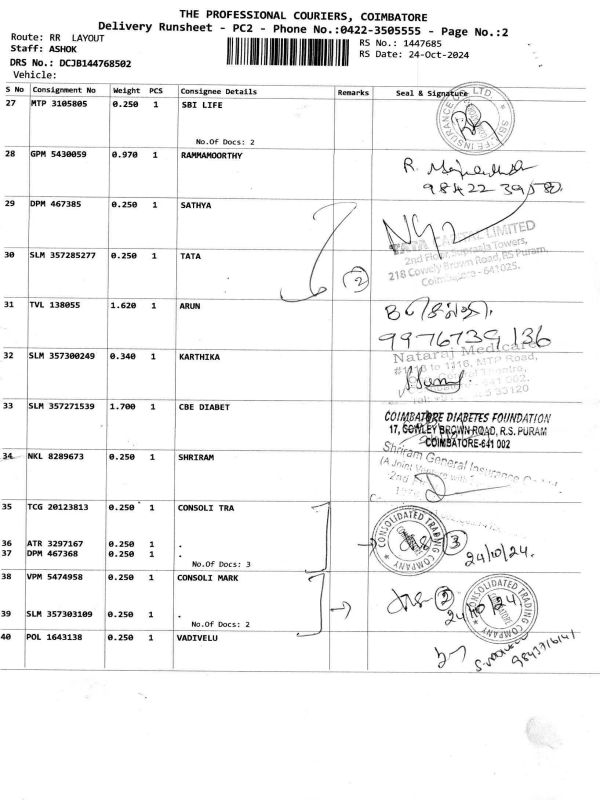 THE PROFESSIONAL COURIERS, COIMBATORE
Delivery Runsheet - PC2 - Phone No.:0422-3505555 - Page No.:2
Route: RR LAYOUT
Staff: ASHOK
DRS No.: DCJB144768502
Vehicle:
RS No.: 1447685
RS Date: 24-Oct-2024
S No Consignment No Weight PCS Consignee Details Remarks Seal & Signature
27 MTP 3105805 0.250 1 SBI LIFE
No.Of Docs: 2
28 GPM 5430059 0.970 1 RAMMAMOORTHY
R.
29 DPM 467385 0.250 1 SATHYA
TATA CAPITAL LIMITED
2nd Floor, Supraja Towers,
218 Cowely Brown Road, RS Puram,
Coimbatore - 641025.
30 SLM 357285277 0.250 1 TATA
2
31 TVL 138055 1.620 1 ARUN
9976739136
32 SLM 357300249 0.340 1 KARTHIKA
Nataraj Medicare
MTP Road,
33 SLM 357271539 1.700 1 CBE DIABET
COIMBATORE DIABETES FOUNDATION
17, COWLEY BROWN ROAD, R.S. PURAM
COIMBATORE-641 002
34 NKL 8289673 0.250 1 SHRIRAM
Shriram General Insurance
(A Joint Venture with
2nd
35 TCG 20123813 0.250 1 CONSOLI TRA
36 ATR 3297167 0.250 1 .
37 DPM 467368 0.250 1 .
No.Of Docs: 3
CONSOLIDATED TRADING COMPANY
3
24/10/24.
38 VPM 5474958 0.250 1 CONSOLI MARK
39 SLM 357303109 0.250 1 .
No.Of Docs: 2
2
24/10/24.
CONSOLIDATED TRADING COMPANY
40 POL 1643138 0.250 1 VADIVELU